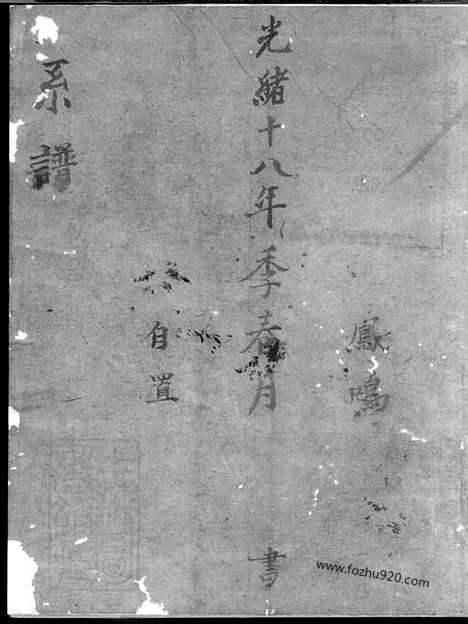 鳳鳴
光緒十八年季春月 書
自置
系譜
www.fozhu920.com